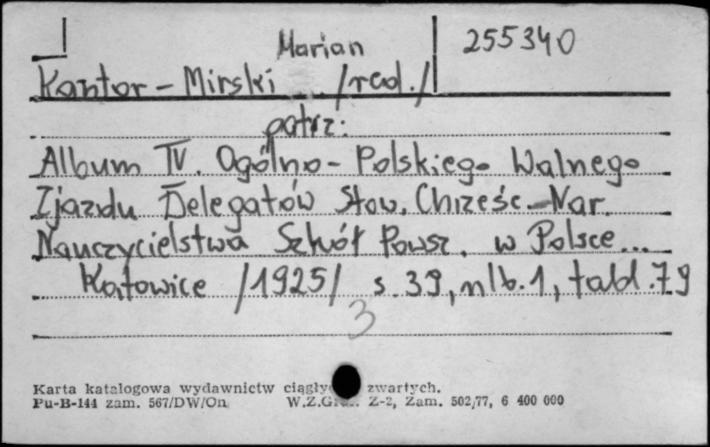 Marian 255340
Kantor - Mirski /red./
patrz:
Album IV. Ogólno - Polskiego Walnego
Zjazdu Delegatów Stow. Chrześc. Nar.
Nauczycielstwa Szkół Powsz. w Polsce...
Katowice /1925/ s. 39, nlb. 1, tabl. 79
3
Karta katalogowa wydawnictw zwartych.
Pu-B-144 zam. 567/DW/On Z-2, Zam. 502/77, 6 400 000